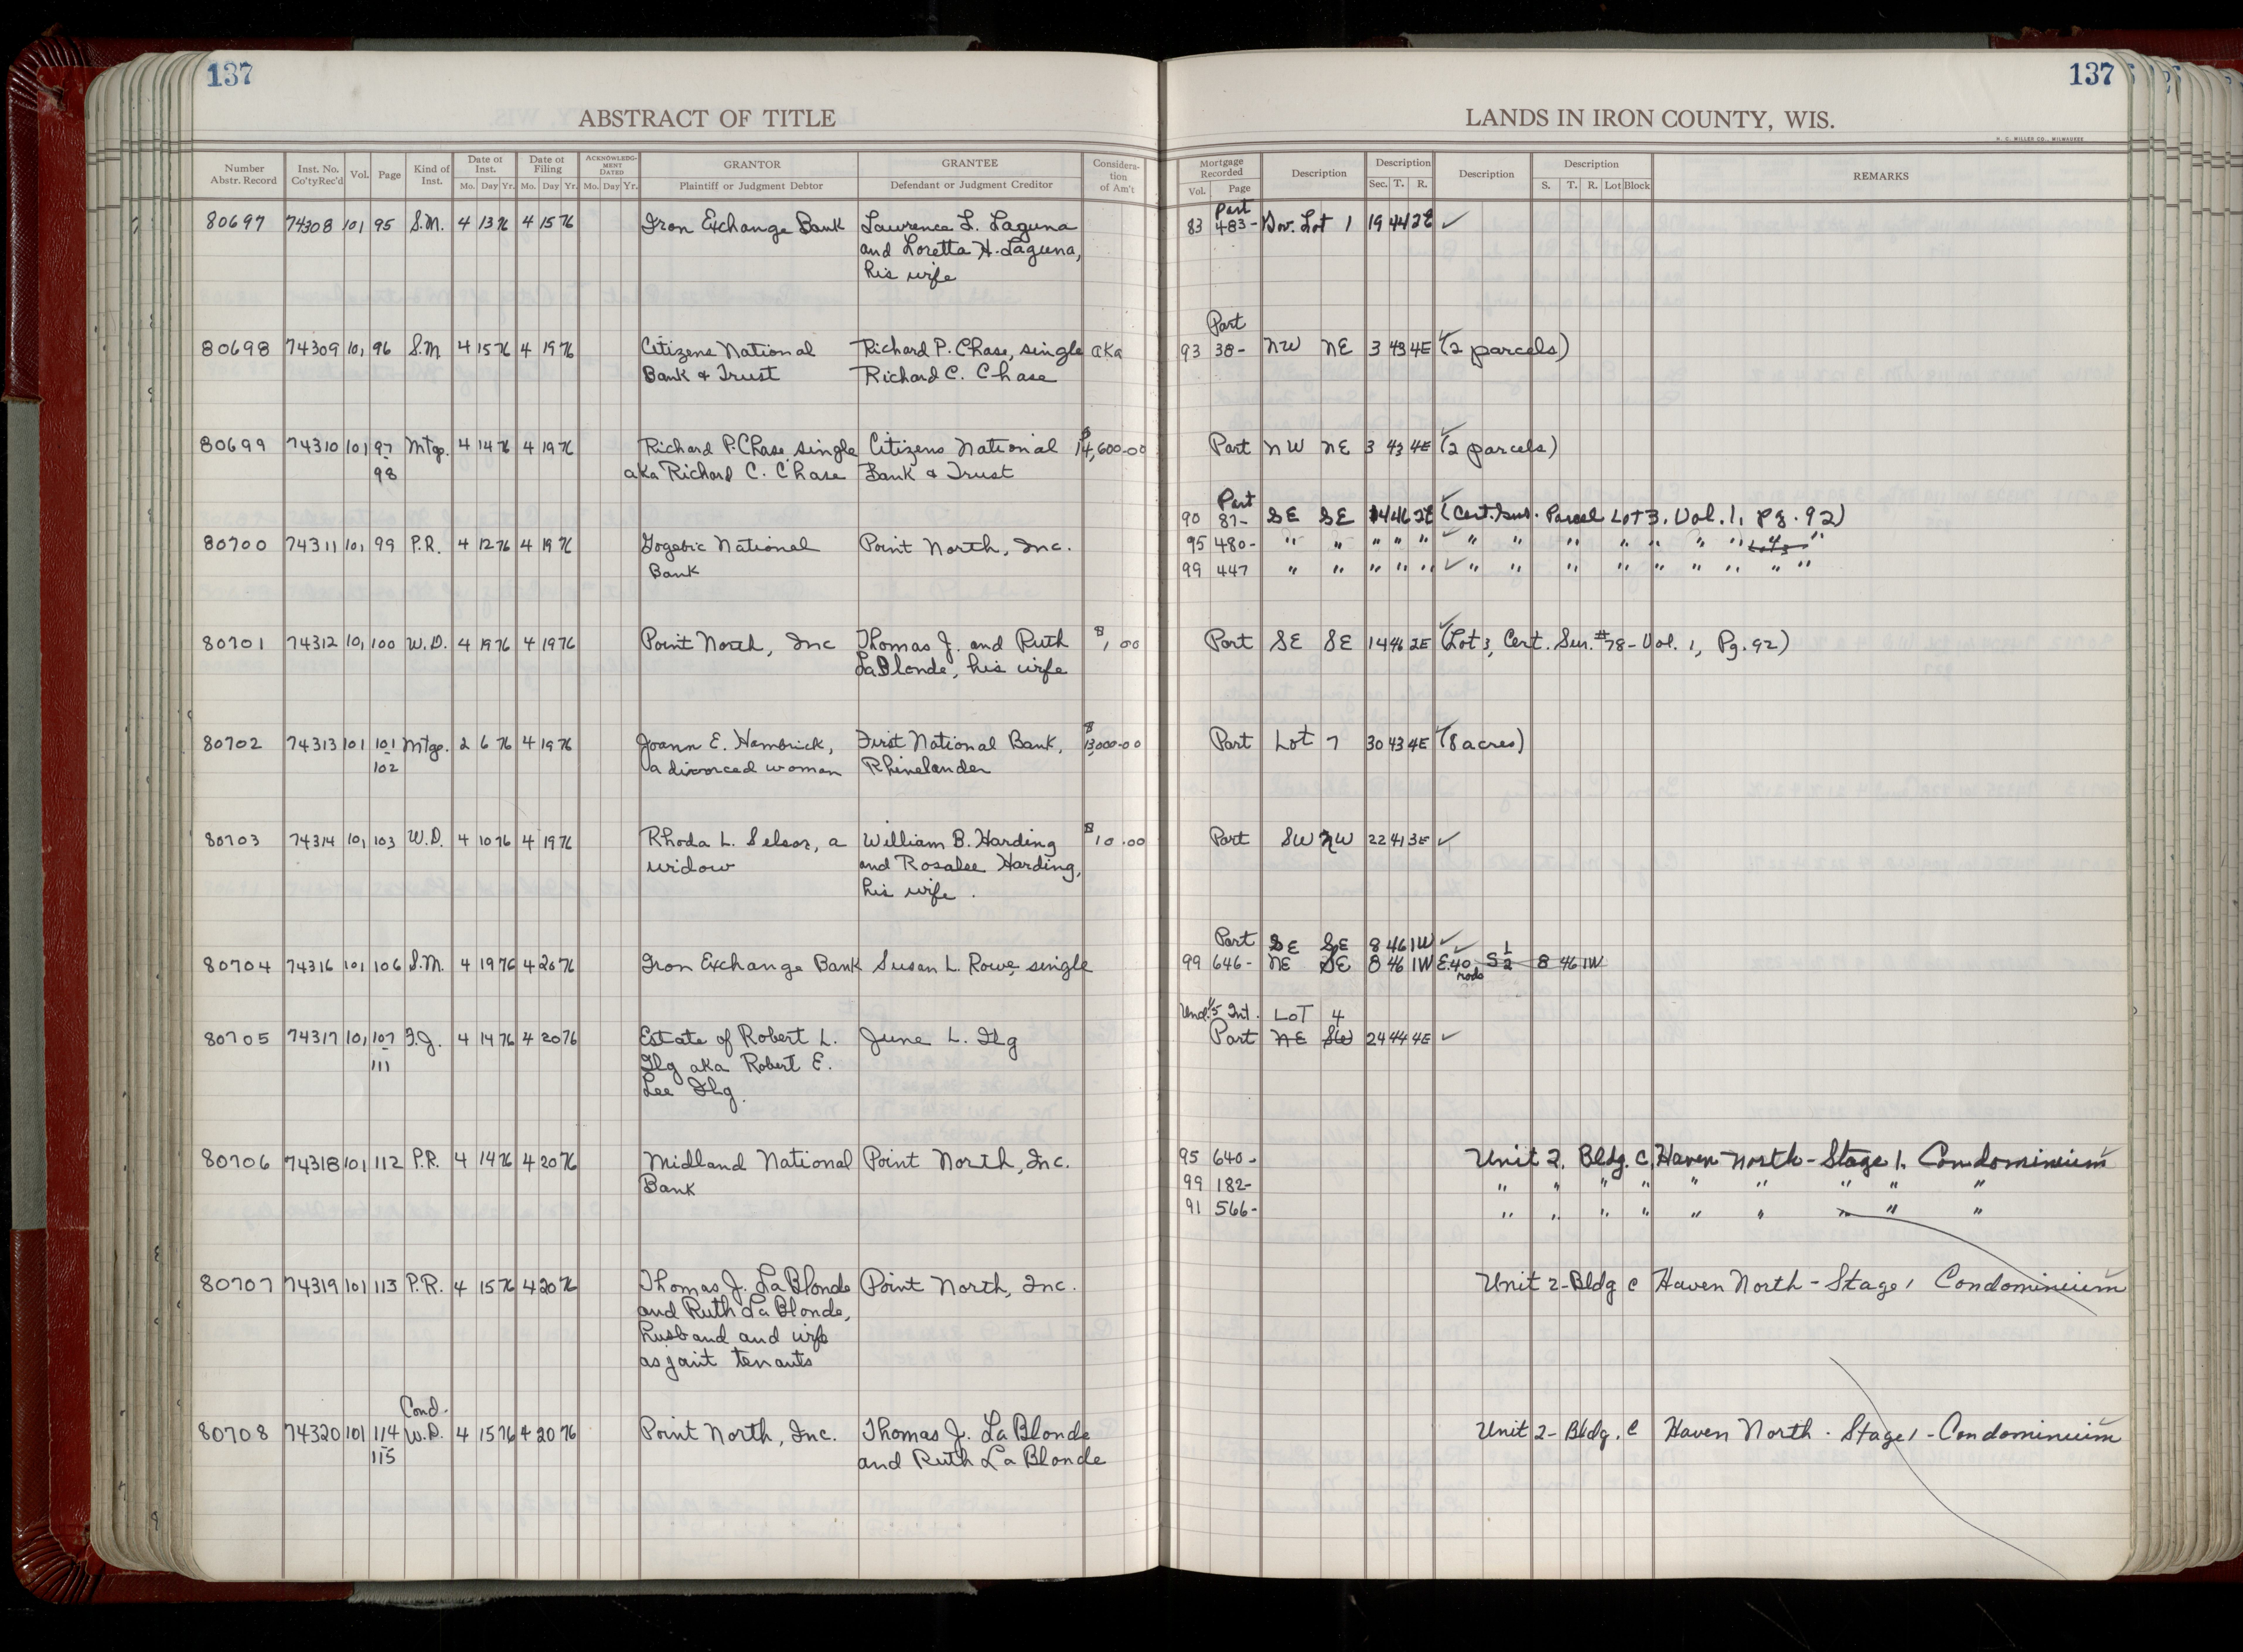 137
137
ABSTRACT OF TITLE
LANDS IN IRON COUNTY, WIS.
H. C. MILLER CO., MILWAUKEE
Number Abstr. Record
Inst. No. Co'ty Rec'd
Vol.
Page
Kind of Inst.
Date of Inst.
Mo. Day Yr.
Date of Filing
Mo. Day Yr.
ACKNOWLEDGMENT DATED
Mo. Day Yr.
GRANTOR
Plaintiff or Judgment Debtor
GRANTEE
Defendant or Judgment Creditor
Consideration of Am't
Mortgage Recorded
Vol. Page
Description
Description
Sec. T. R.
Description
Description
S. T. R. Lot Block
REMARKS
Part
80697 74308 101 95 S.M. 4 13 76 4 15 76 Iron Exchange Bank Lawrence L. Laguna 83 483- Gov. Lot 1 19 44 2E ✓
and Loretta H. Laguna,
his wife
Part
80698 74309 101 96 S.M. 4 15 76 4 19 76 Citizens National Richard P. Chase, single aka 93 38- NW NE 3 43 4E ✓ (2 parcels)
Bank & Trust Richard C. Chase
80699 74310 101 97 Mtge. 4 14 76 4 19 76 Richard P. Chase, single Citizens National $14,600.00 Part NW NE 3 43 4E ✓ (2 parcels)
98 aka Richard C. Chase Bank & Trust
Part
90 87- SE SE 14 46 2E ✓ (Cert. Sur. Parcel Lot 3, Vol. 1, Pg. 92)
80700 74311 101 99 P.R. 4 12 76 4 19 76 Gogebic National Point North, Inc. 95 480- " " " " " ✓ " " " " " " " "
Bank 99 447 " " " " " ✓ " " " " " " " " "
80701 74312 101 100 W.D. 4 19 76 4 19 76 Point North, Inc Thomas J. and Ruth $1.00 Part SE SE 14 46 2E ✓ (Lot 3, Cert. Sur. #78 - Vol. 1, Pg. 92)
LaBlonde, his wife
80702 74313 101 101 Mtge. 2 6 76 4 19 76 Joann E. Hambrick, First National Bank, $13,000.00 Part Lot 7 30 43 4E ✓ (8 acres)
102 a divorced woman Rhinelander
80703 74314 101 103 W.D. 4 10 76 4 19 76 Rhoda L. Selsor, a William B. Harding $10.00 Part SW NW 22 41 3E ✓
widow and Rosalee Harding,
his wife.
Part SE SE 8 46 1W ✓
80704 74316 101 106 S.M. 4 19 76 4 20 76 Iron Exchange Bank Susan L. Rowe, single 99 646- NE SE 8 46 1W E.40 S 1/2 8 46 1W
rods
Und. 1/5 Int. LOT 4
80705 74317 101 107 F.J. 4 14 76 4 20 76 Estate of Robert L. June L. Ilg Part NE SW 24 44 4E ✓
111 Ilg aka Robert E.
Lee Ilg.
80706 74318 101 112 P.R. 4 14 76 4 20 76 Midland National Point North, Inc. 95 640- Unit 2, Bldg. C, Haven North - Stage 1, Condominium ✓
Bank 99 182- " " " " " " " " "
91 566- " " " " " " " " "
80707 74319 101 113 P.R. 4 15 76 4 20 76 Thomas J. LaBlonde Point North, Inc. Unit 2-Bldg C Haven North - Stage 1 Condominium ✓
and Ruth LaBlonde,
husband and wife
as joint tenants
Cond.
80708 74320 101 114 W.D. 4 15 76 4 20 76 Point North, Inc. Thomas J. LaBlonde Unit 2- Bldg. C Haven North - Stage 1 - Condominium ✓
115 and Ruth LaBlonde